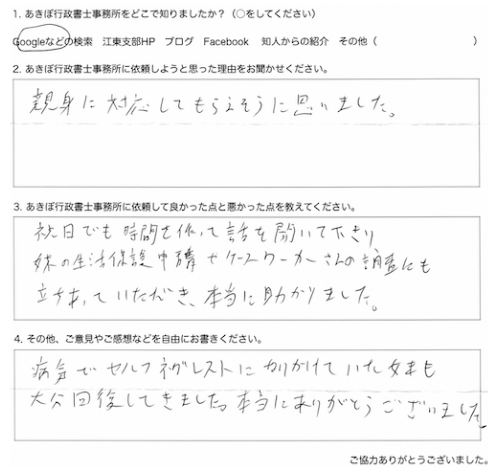 1. あきぼ行政書士事務所をどこで知りましたか？（○をしてください）
Googleなどの検索　江東支部HP　ブログ　Facebook　知人からの紹介　その他（　　　　　　　　）
2. あきぼ行政書士事務所に依頼しようと思った理由をお聞かせください。
親身に対応してもらえそうに思いました。
3. あきぼ行政書士事務所に依頼して良かった点と悪かった点を教えてください。
祝日でも時間を作って話を聞いて下さり
妹の生活保護申請やケースワーカーさんの調査にも
立ちあっていただき、本当に助かりました。
4. その他、ご意見やご感想などを自由にお書きください。
病気でセルフネグレストになりかけていた妹も
大分回復してきました。本当にありがとうございました。
ご協力ありがとうございました。